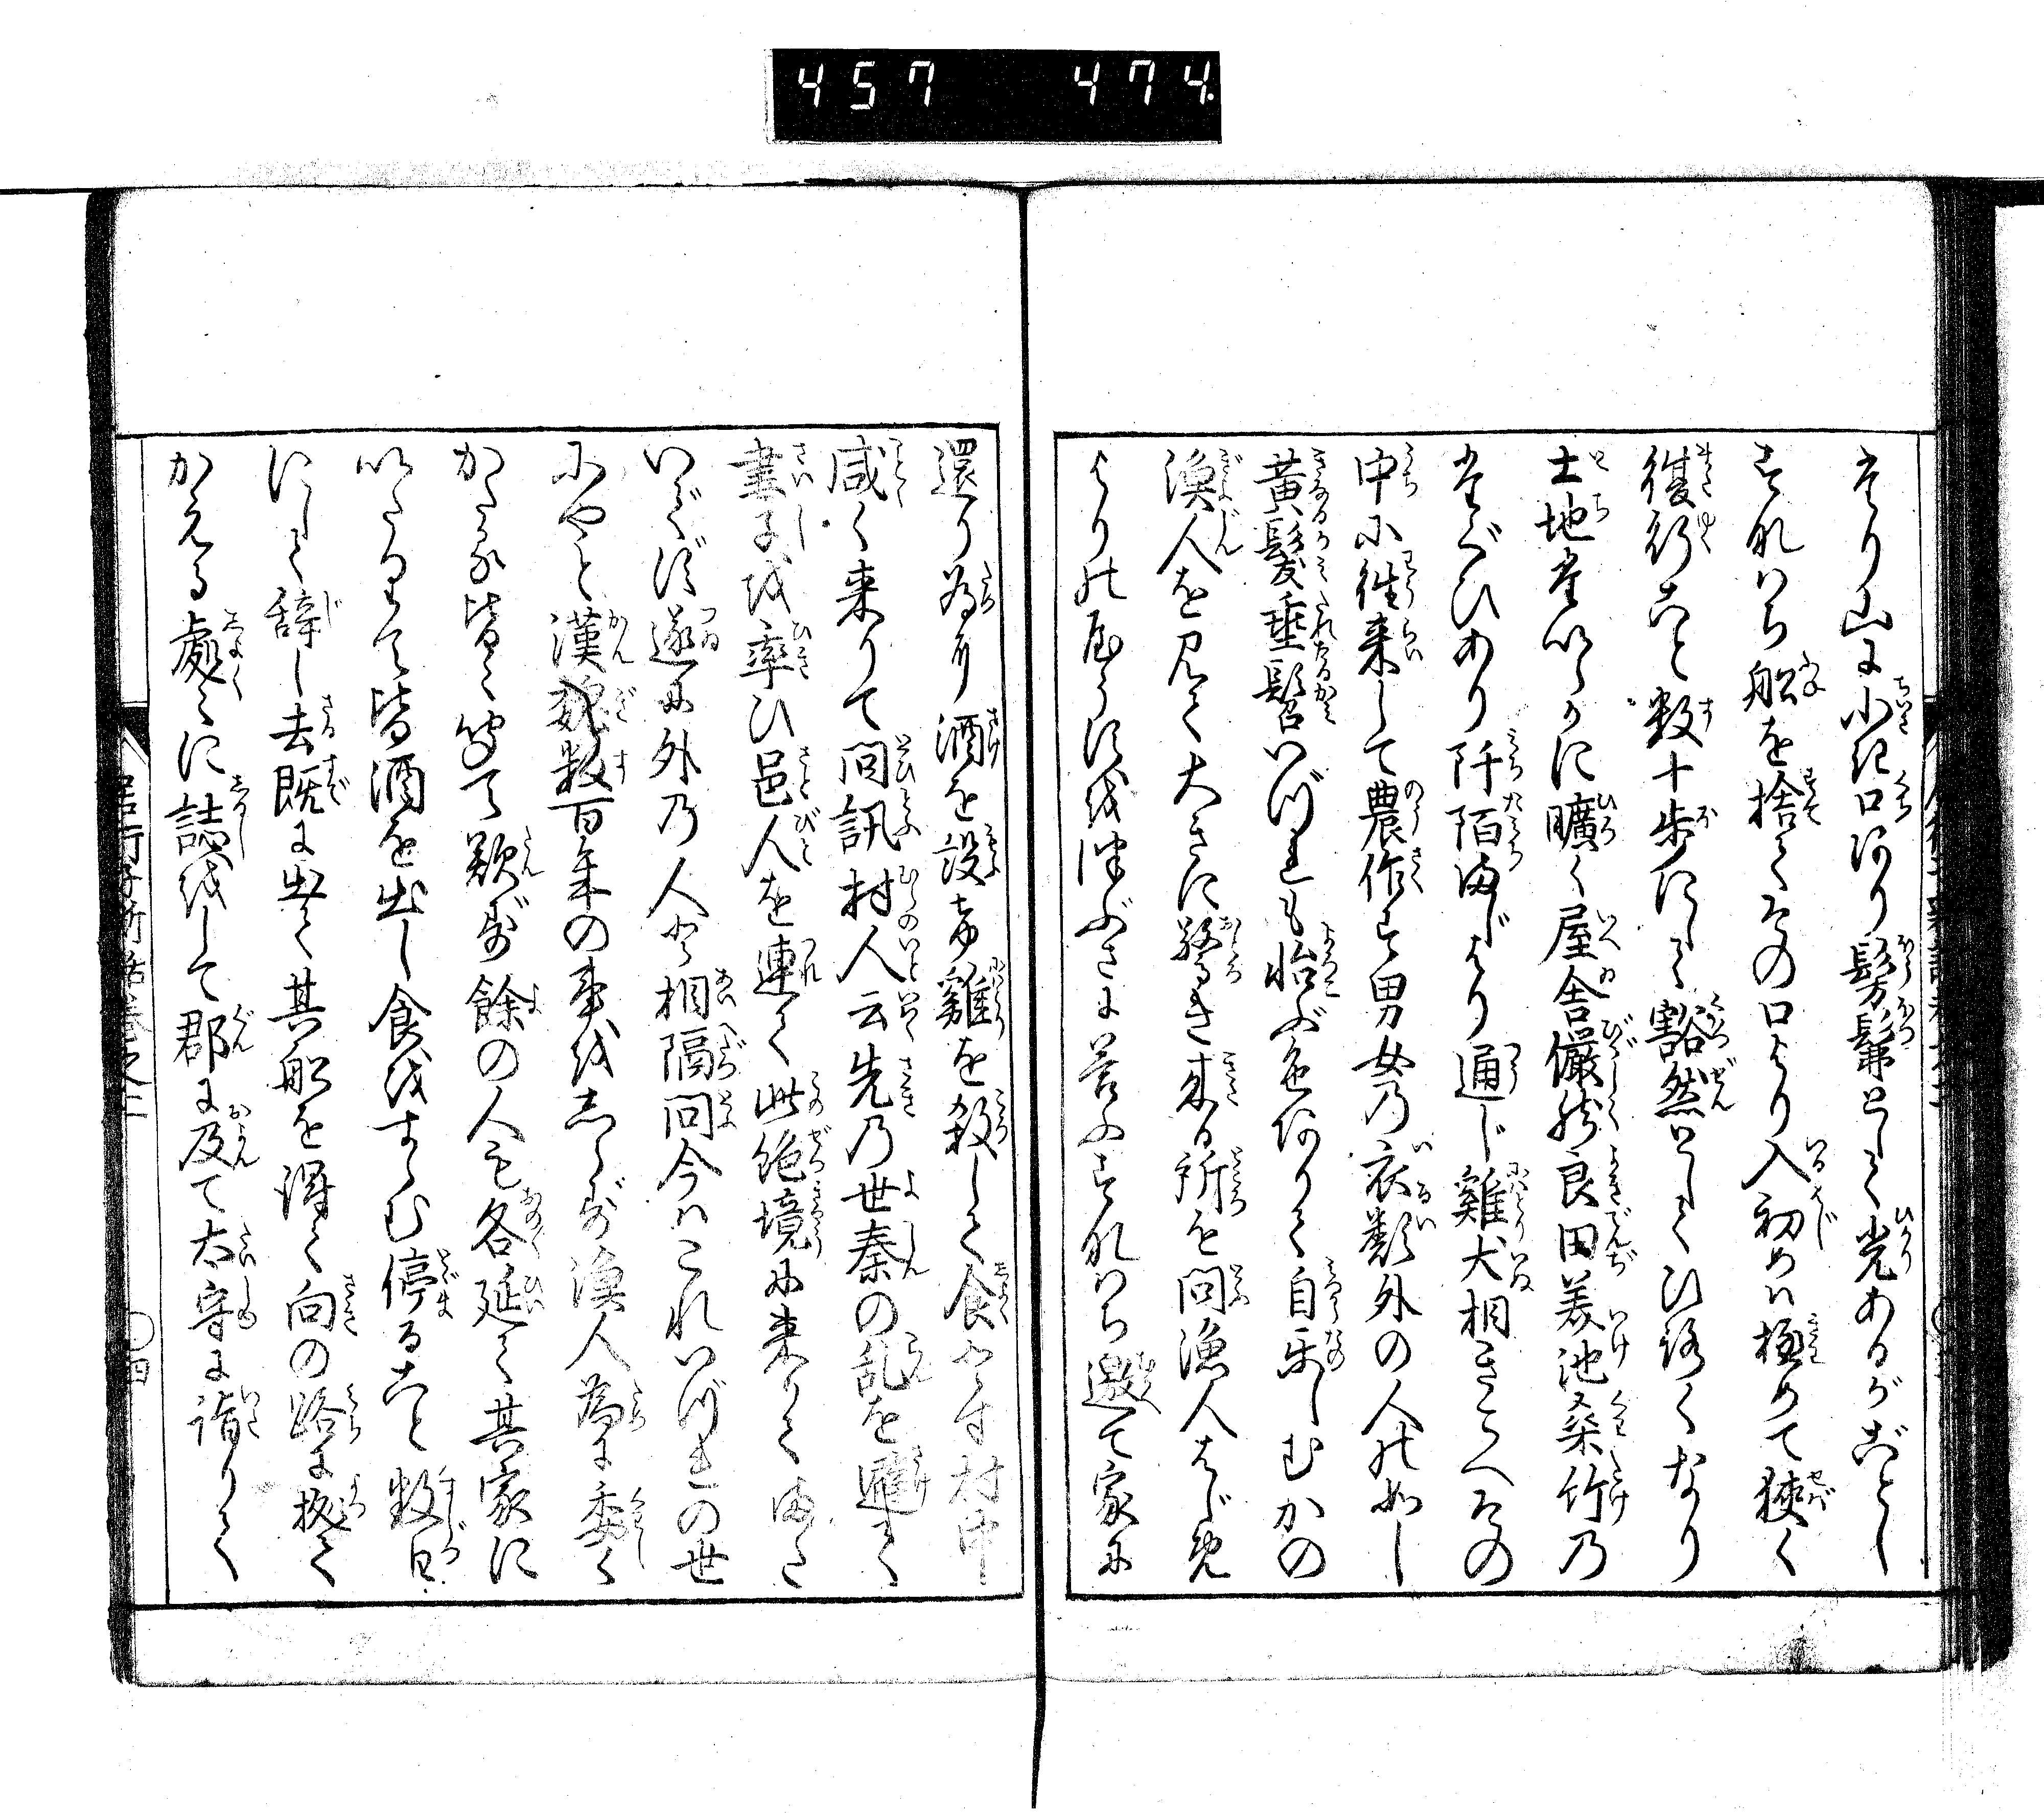 457 474
そり山に小き口あり髣髴として光あるがごとし
すなハち船を捨てその口より入初めハ極めて狭く
復行こと数十歩にして豁然としてひろくなり
土地たいらかに曠く屋舎儼然良田美池桑竹乃
たぐひあり阡陌まじはり通じ雞犬相きこへその
中に往来して農作す男女乃衣類外の人の如し
黄髪垂髫いづれも怡ぶ色ありて自楽しむかの
漁人を見て大きに驚き来る所を問漁人はじめ
よりのやうすをつぶさに答ふすなハち邀て家に
還り為に酒を設け雞を殺して食とす村中
咸く来りて問訊村人云先乃世秦の乱を避て
妻子を率ひ邑人を連て此絶境に来りてまた
いでず遂に外乃人と相隔問今ハこれいづれの世
にやと漢魏数百年の事をしらず漁人為に委く
かたる皆々聞て歎ず餘の人も各延て其家に
いたりて皆酒を出し食をすゝむ停ること数日
にして辞し去既に出て其船を得て向の路に扶て
かえる處々に誌をして郡に及て太守に詣りて